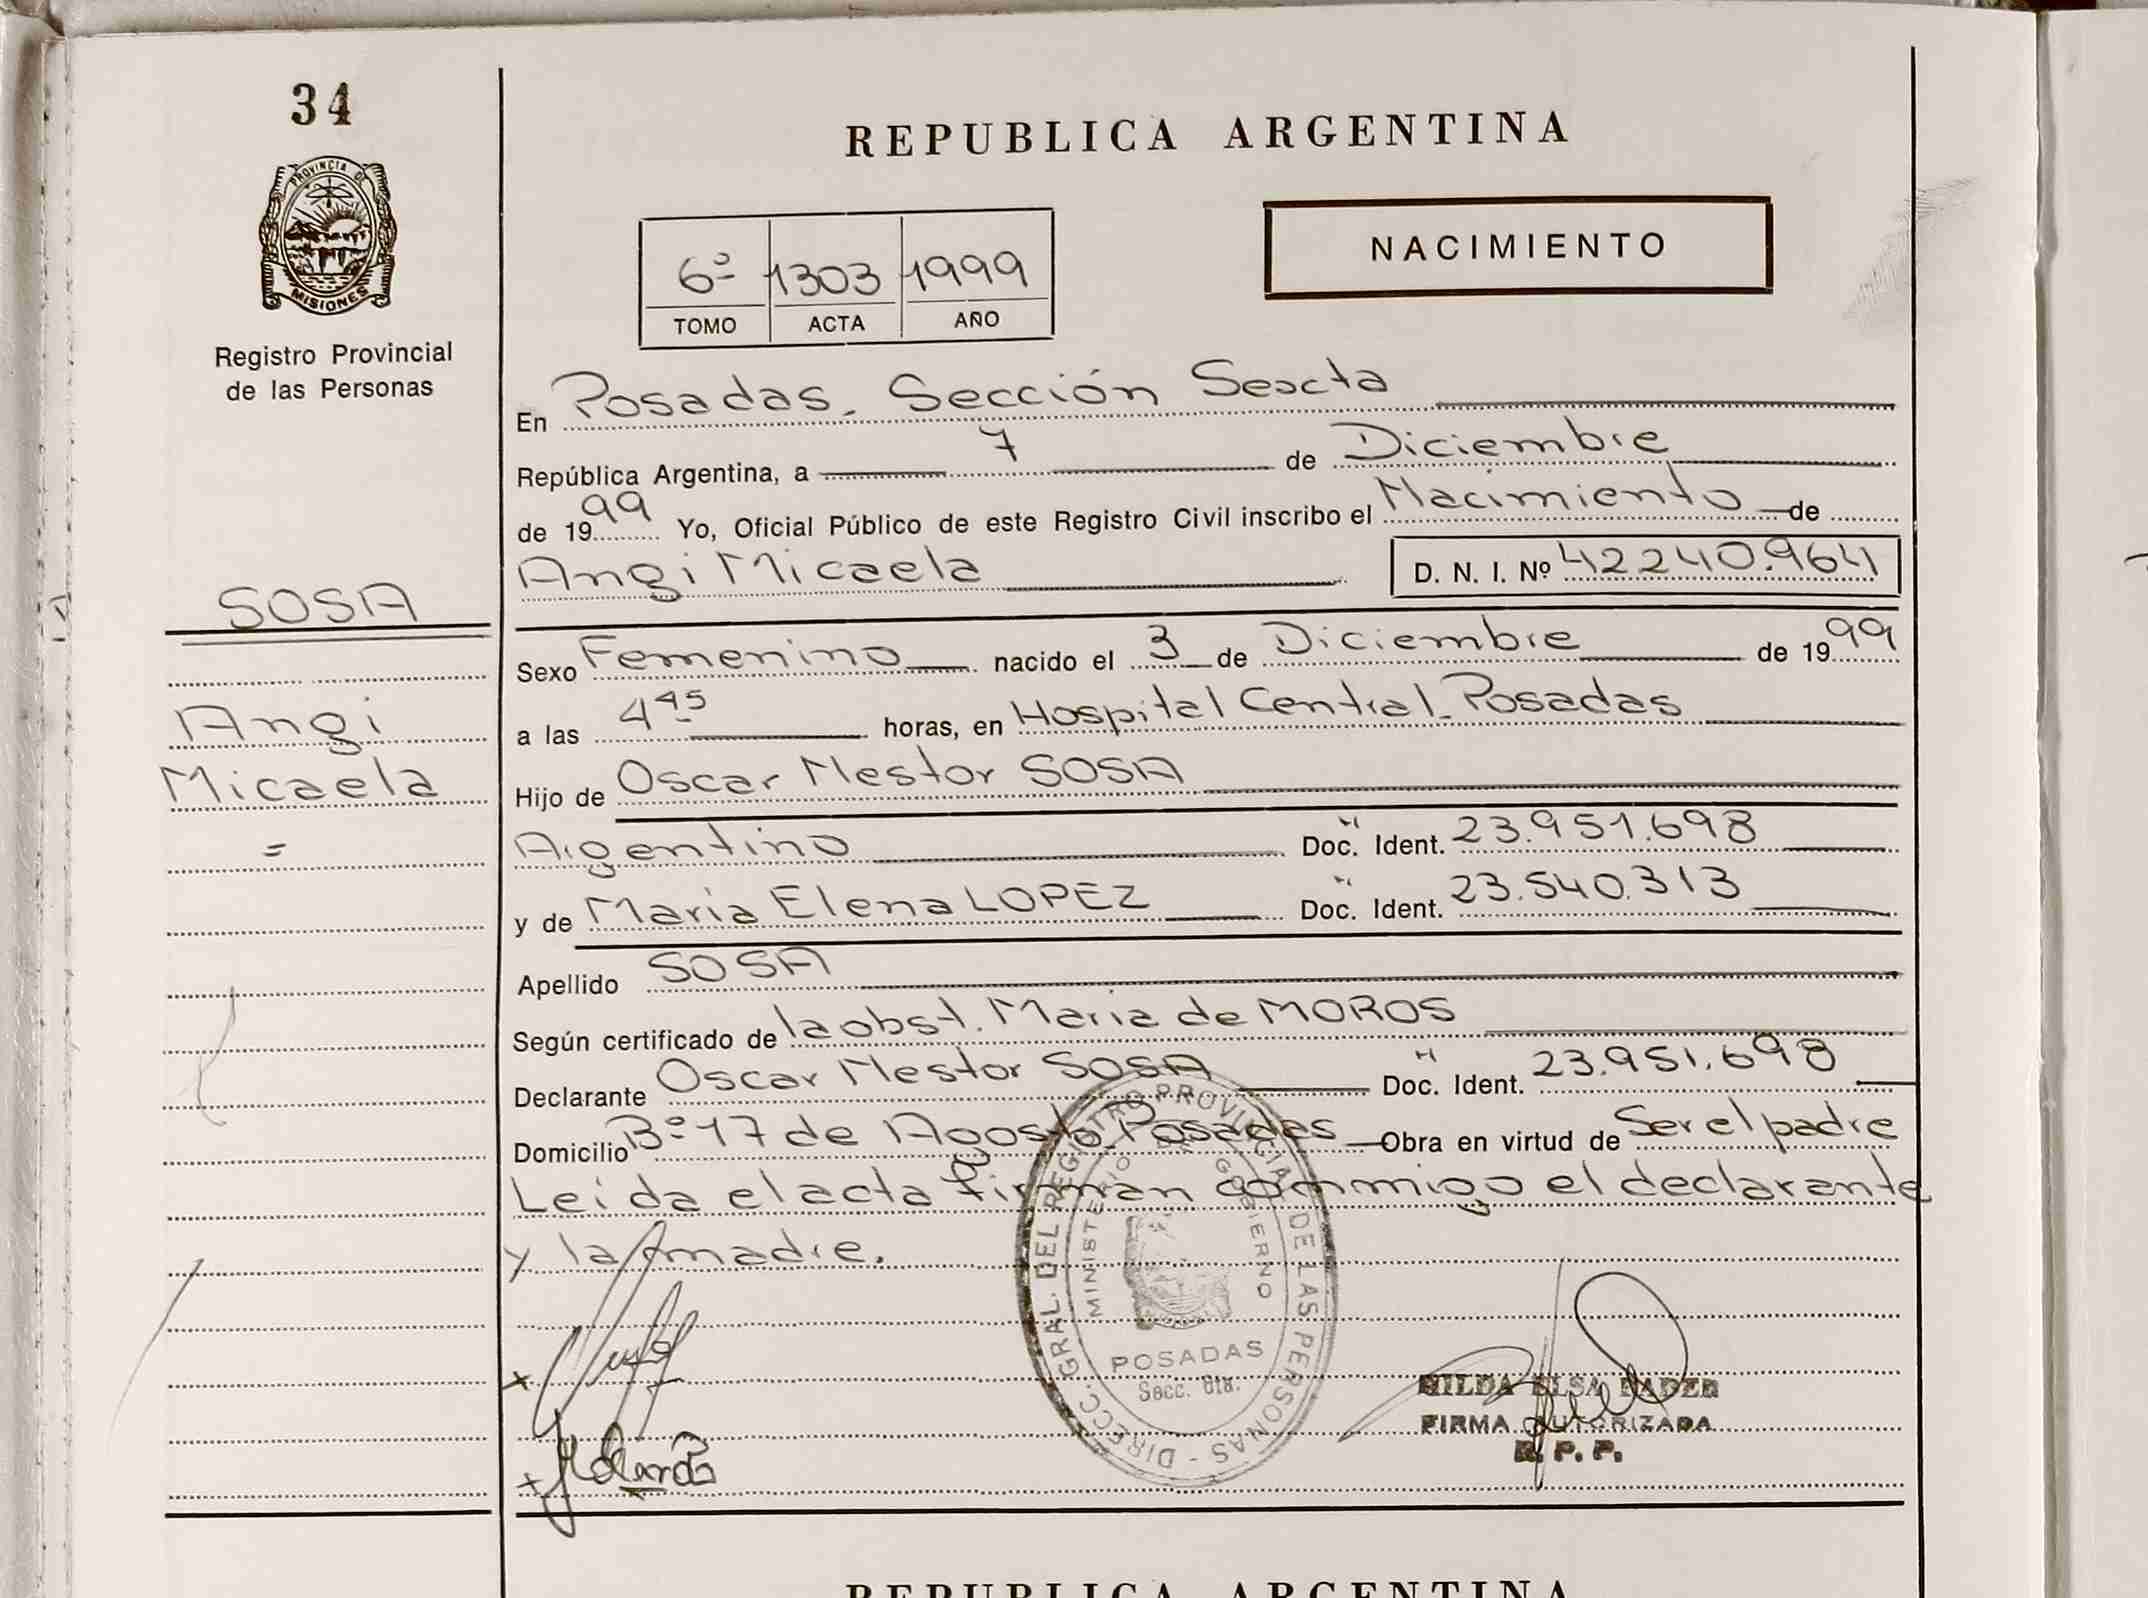 34
PROVINCIA DE
MISIONES
Registro Provincial
de las Personas
SOSA
Angi
Micaela
=
REPUBLICA ARGENTINA
6º 1303 1999
TOMO ACTA AÑO
NACIMIENTO
En Posadas. Sección Sexta
República Argentina, a 7 de Diciembre
de 1999 Yo, Oficial Público de este Registro Civil inscribo el Nacimiento de
Angi Micaela D. N. I. Nº 42240.964
Sexo Femenino nacido el 3 de Diciembre de 1999
a las 4 45 horas, en Hospital Central_Posadas
Hijo de Oscar Nestor SOSA
Argentino Doc. Ident. 23.951.698
y de Maria Elena LOPEZ Doc. Ident. 23.540.313
Apellido SOSA
Según certificado de la obst. Maria de MOROS
Declarante Oscar Nestor SOSA Doc. Ident. 23.951.698
Domicilio Bº 17 de Agosto Posadas Obra en virtud de Ser el padre
Leida el acta firman conmigo el declarante
y la madre.
DIRECC. GRAL. DEL REGISTRO PROVINCIAL DE LAS PERSONAS -
MINISTERIO GOBIERNO
POSADAS
Secc. 6ta.
FIRMA AUTORIZADA
R. P. P.
REPUBLICA ARGENTINA